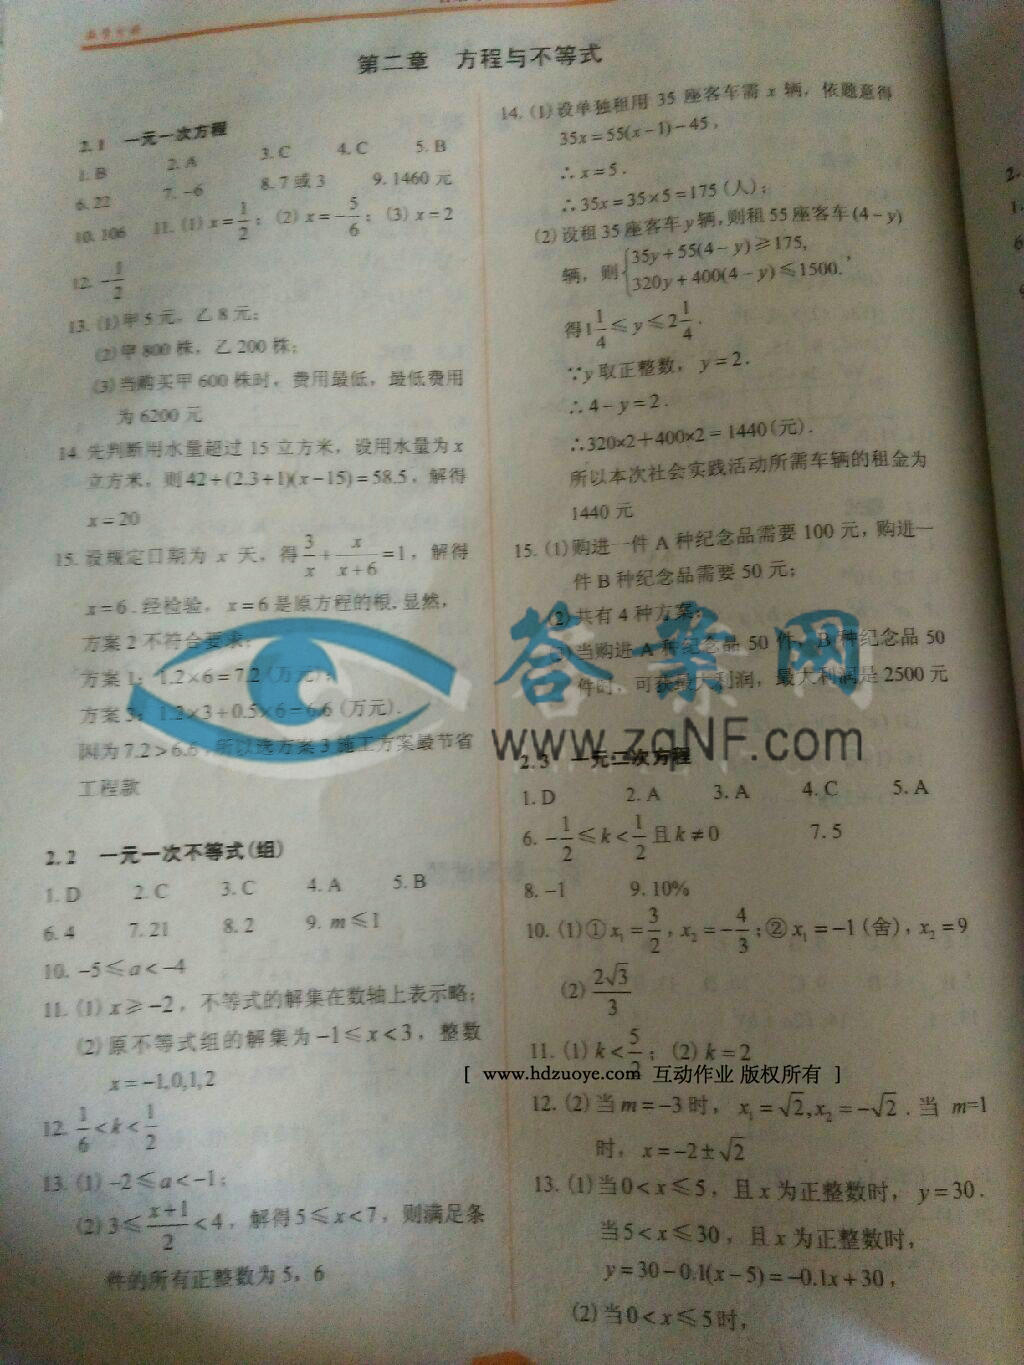 第二章 方程与不等式
2.1 一元一次方程
1.B 2.A 3.C 4.C 5.B
6.22 7.-6 8.7或3 9.1460元
10.106 11.(1)x=1/2；(2)x=-5/6；(3)x=2
12.-1/2
13.(1)甲5元，乙8元；
(2)甲800株，乙200株；
(3)当购买甲600株时，费用最低，最低费用
为6200元
14.先判断用水量超过15立方米，设用水量为x
立方米，则42+(2.3+1)(x-15)=58.5，解得
x=20
15.设规定日期为x天，得3/x+x/(x+6)=1，解得
x=6.经检验，x=6是原方程的根.显然，
方案2不符合要求；
方案1：1.2×6=7.2(万元)；
方案3：1.2×3+0.5×6=6.6(万元).
因为7.2>6.6，所以选方案3施工方案最节省
工程款
2.2 一元一次不等式(组)
1.D 2.C 3.C 4.A 5.B
6.4 7.21 8.2 9.m≤1
10.-5≤a<-4
11.(1)x≥-2，不等式的解集在数轴上表示略；
(2)原不等式组的解集为-1≤x<3，整数
x=-1,0,1,2
12.1/6<k<1/2
13.(1)-2≤a<-1；
(2)3≤(x+1)/2<4，解得5≤x<7，则满足条
件的所有正整数为5，6
14.(1)设单独租用35座客车需x辆，依题意得
35x=55(x-1)-45，
∴x=5.
∴35x=35×5=175(人)；
(2)设租35座客车y辆，则租55座客车(4-y)
辆，则{35y+55(4-y)≥175,
320y+400(4-y)≤1500.，
得1 1/4≤y≤2 1/4.
∵y取正整数，y=2.
∴4-y=2.
∴320×2+400×2=1440(元).
所以本次社会实践活动所需车辆的租金为
1440元
15.(1)购进一件A种纪念品需要100元，购进一
件B种纪念品需要50元；
(2)共有4种方案；
(3)当购进A种纪念品50件，B种纪念品50
件时，可获最大利润，最大利润是2500元
答案网
www.zqNF.com
2.3 一元二次方程
1.D 2.A 3.A 4.C 5.A
6.-1/2≤k<1/2且k≠0 7.5
8.-1 9.10%
10.(1)①x₁=3/2，x₂=-4/3；②x₁=-1(舍)，x₂=9
(2)2√3/3
11.(1)k<5/2；(2)k=2
[ www.hdzuoye.com 互动作业 版权所有 ]
12.(2)当m=-3时，x₁=√2,x₂=-√2.当 m=1
时，x=-2±√2
13.(1)当0<x≤5，且x为正整数时，y=30.
当5<x≤30，且x为正整数时，
y=30-0.1(x-5)=-0.1x+30，
(2)当0<x≤5时，